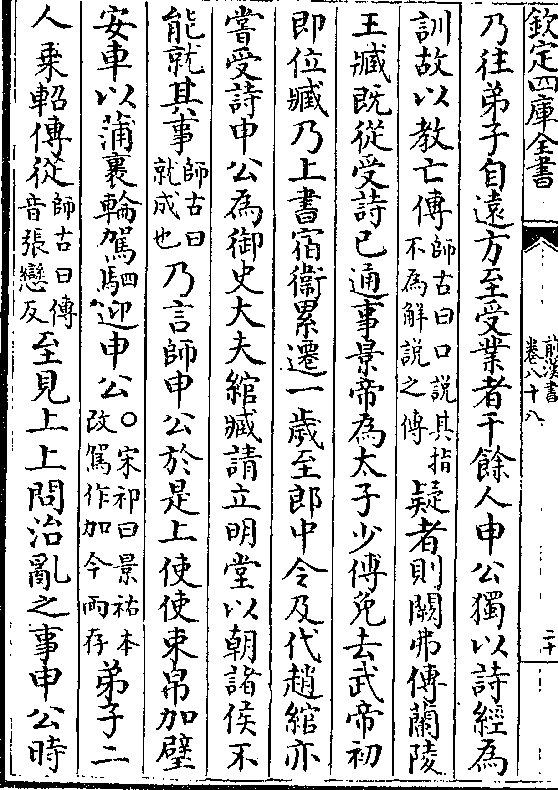 欽定四庫全書
前漢書
卷八十八
二十
乃往弟子自遠方至受業者千餘人申公獨以詩經為
訓故以教亡傳師古曰口說其指不為解說之傳疑者則闕弗傳蘭陵
王臧既從受詩已通事景帝為太子少傅免去武帝初
即位臧乃上書宿衞累遷一歲至郎中令及代趙綰亦
嘗受詩申公為御史大夫綰臧請立明堂以朝諸侯不
能就其事師古曰就成也乃言師申公於是上使使束帛加璧
安車以蒲裹輪駕駟迎申公○宋祁曰景祐本改駕作加今兩存弟子二
人乗軺傳從師古曰傳音張戀反至見上上問治亂之事申公時